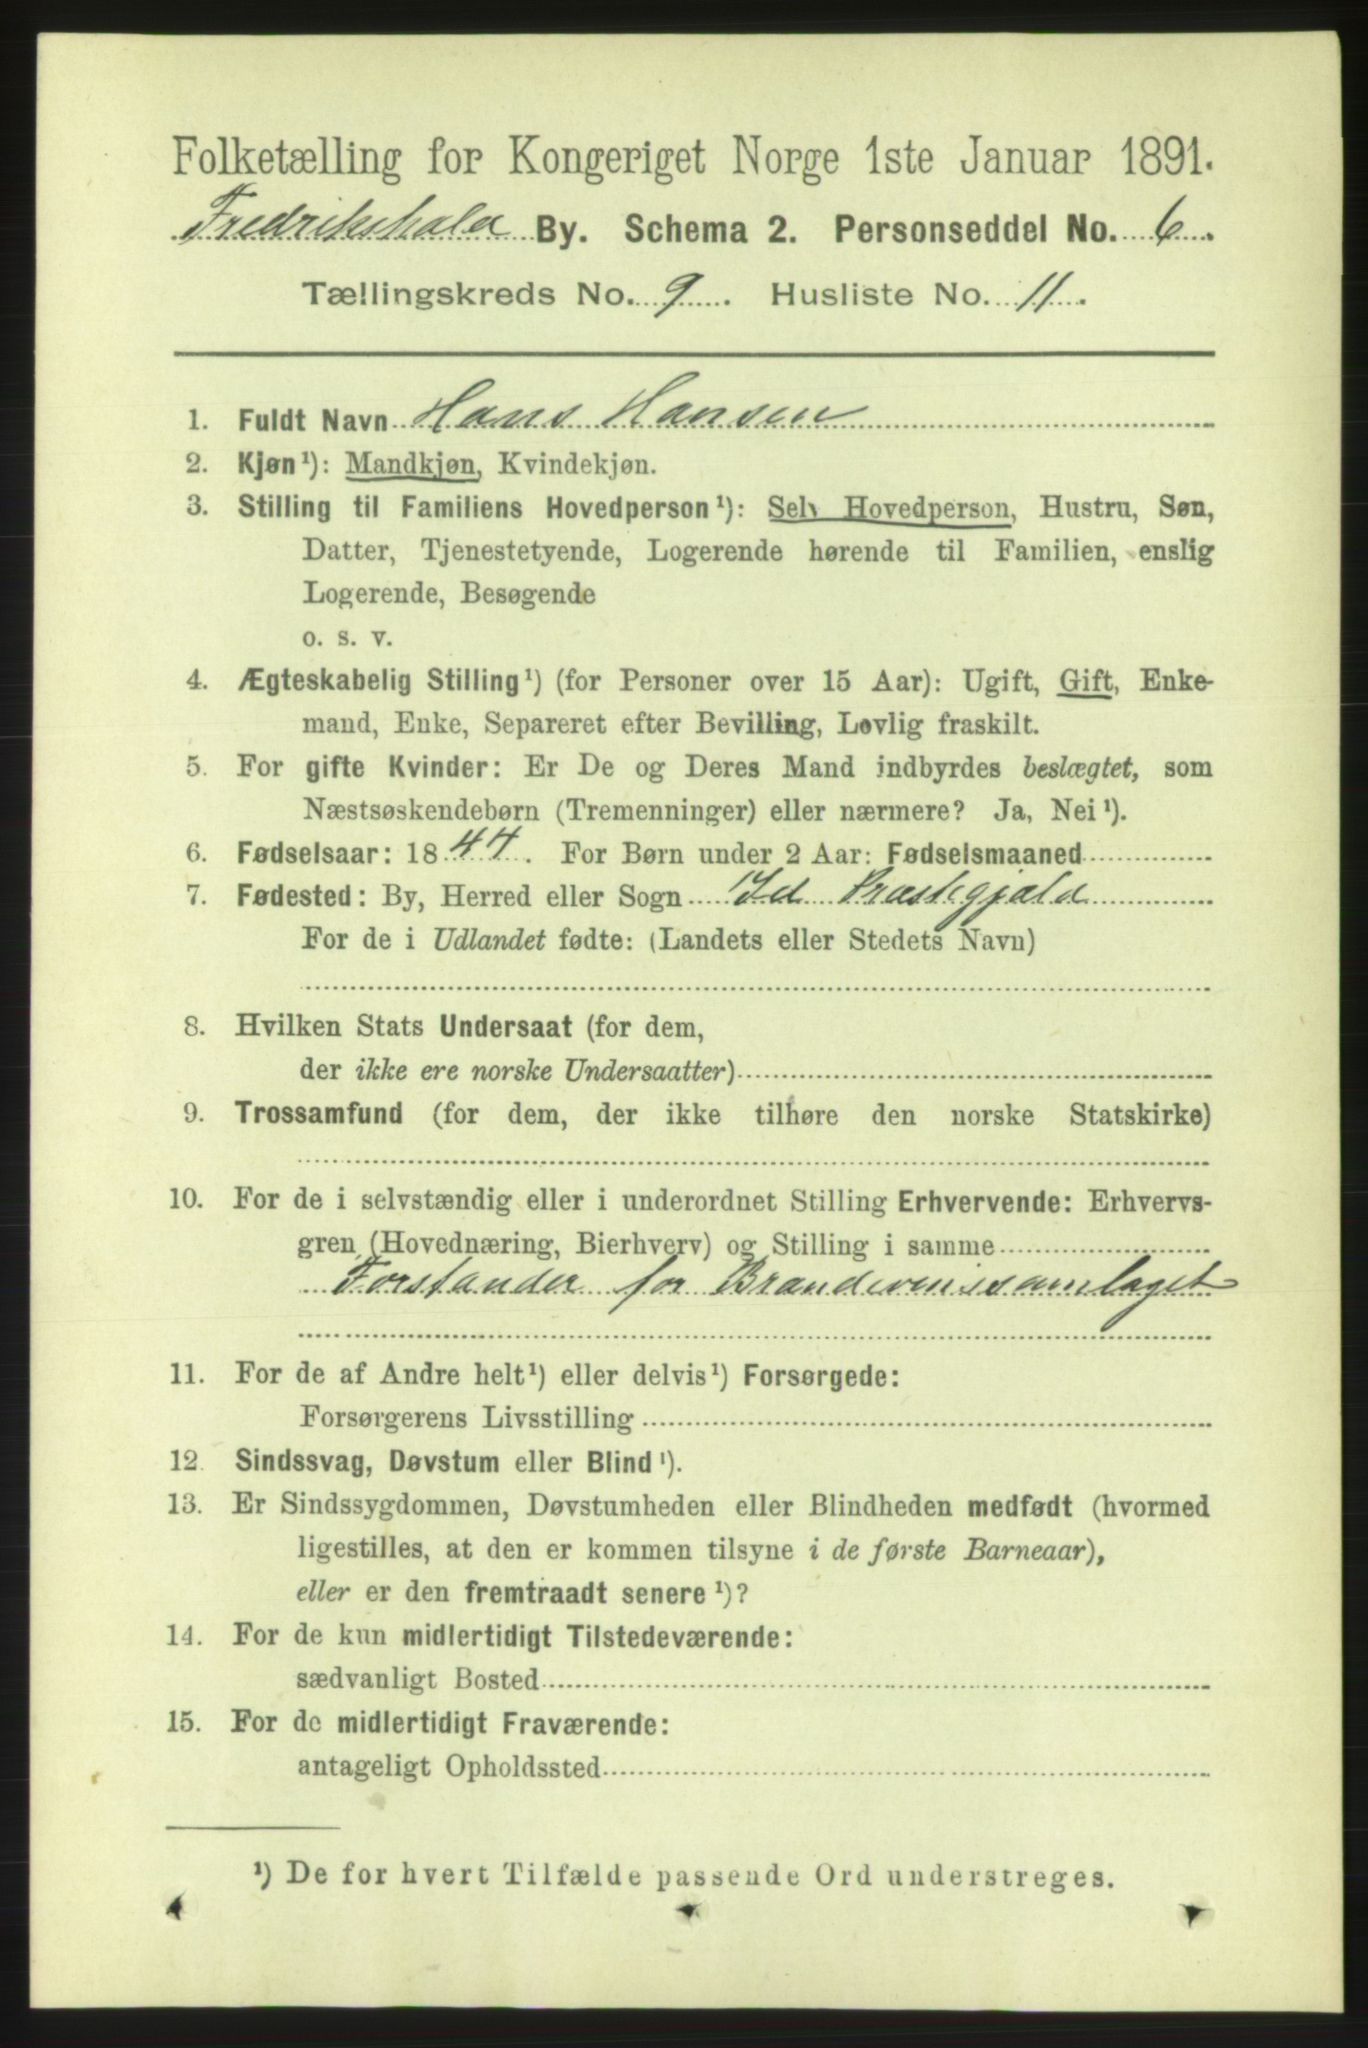 Folketælling for Kongeriget Norge 1ste Januar 1891.
Fredrikshald By. Schema 2. Personseddel No. 6.
Tællingskreds No. 9. Husliste No. 11.
1. Fuldt Navn Hans Hansen
2. Kjøn¹): Mandkjøn, Kvindekjøn.
3. Stilling til Familiens Hovedperson¹): Selv Hovedperson, Hustru, Søn,
Datter, Tjenestetyende, Logerende hørende til Familien, enslig
Logerende, Besøgende
o. s. v.
4. Ægteskabelig Stilling¹) (for Personer over 15 Aar): Ugift, Gift, Enke-
mand, Enke, Separeret efter Bevilling, Lovlig fraskilt.
5. For gifte Kvinder: Er De og Deres Mand indbyrdes beslægtet, som
Næstsøskendebørn (Tremenninger) eller nærmere? Ja, Nei¹).
6. Fødselsaar: 1844. For Børn under 2 Aar: Fødselsmaaned
7. Fødested: By, Herred eller Sogn Id Præstegjæld
For de i Udlandet fødte: (Landets eller Stedets Navn)
8. Hvilken Stats Undersaat (for dem,
der ikke ere norske Undersaatter)
9. Trossamfund (for dem, der ikke tilhøre den norske Statskirke)
10. For de i selvstændig eller i underordnet Stilling Erhvervende: Erhvervs-
gren (Hovednæring, Bierhverv) og Stilling i samme
Forstander for Brændevinssamlaget
11. For de af Andre helt¹) eller delvis¹) Forsørgede:
Forsørgerens Livsstilling
12. Sindssvag, Døvstum eller Blind¹).
13. Er Sindssygdommen, Døvstumheden eller Blindheden medfødt (hvormed
ligestilles, at den er kommen tilsyne i de første Barneaar),
eller er den fremtraadt senere¹)?
14. For de kun midlertidigt Tilstedeværende:
sædvanligt Bosted
15. For de midlertidigt Fraværende:
antageligt Opholdssted
¹) De for hvert Tilfælde passende Ord understreges.